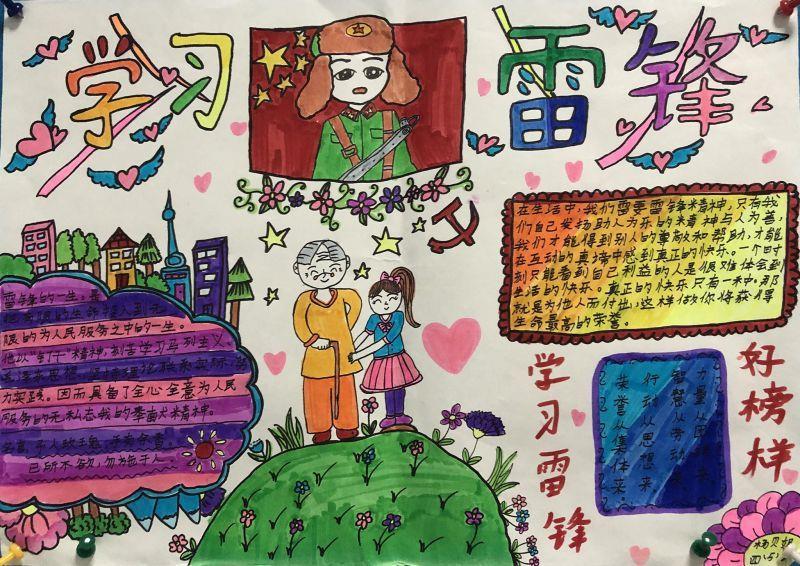 学习雷锋
在生活中,我们需要雷锋精神,只有我
们自己发扬助人为乐的精神与人为善,
我们才能得到别人的尊敬和帮助,才能
在互助的真境中感到真正的快乐。一个时
刻只能看到自己利益的人是很难体会到
生活的快乐。真正的快乐只有一种,那
就是为他人而付出,这样做你将获得
生命最高的荣誉。
雷锋的一生,是
把有限的生命投入到无
限的为人民服务之中的一生。
他以"钉钉"精神,刻苦学习马列主义、
毛泽东思想,坚持理论联系实际,努
力实践。因而具备了全心全意为人民
服务的无私忘我的奉献精神。
名言:予人玫瑰,手有余香。
已所不欲,勿施于人。
好榜样
力量从团结来
智慧从劳动来
行动从思想来
荣誉从集体来
学习雷锋
四(5)